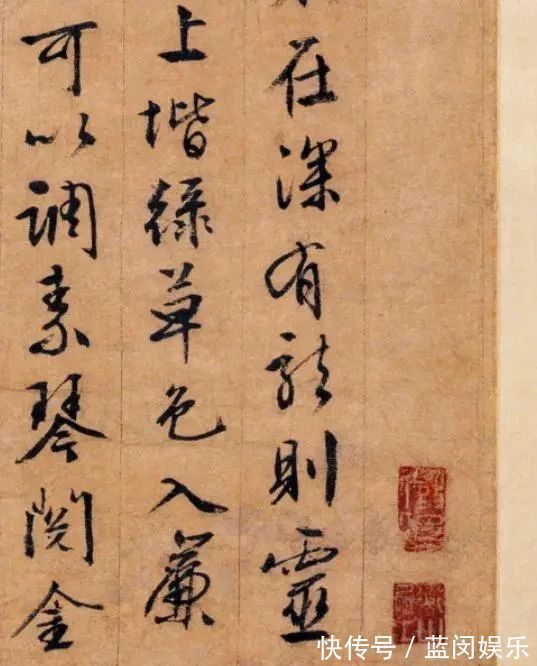 在深有龍則靈
上堦綠草色入簾
可以調素琴閱金
快传号 / 蓝闵娱乐